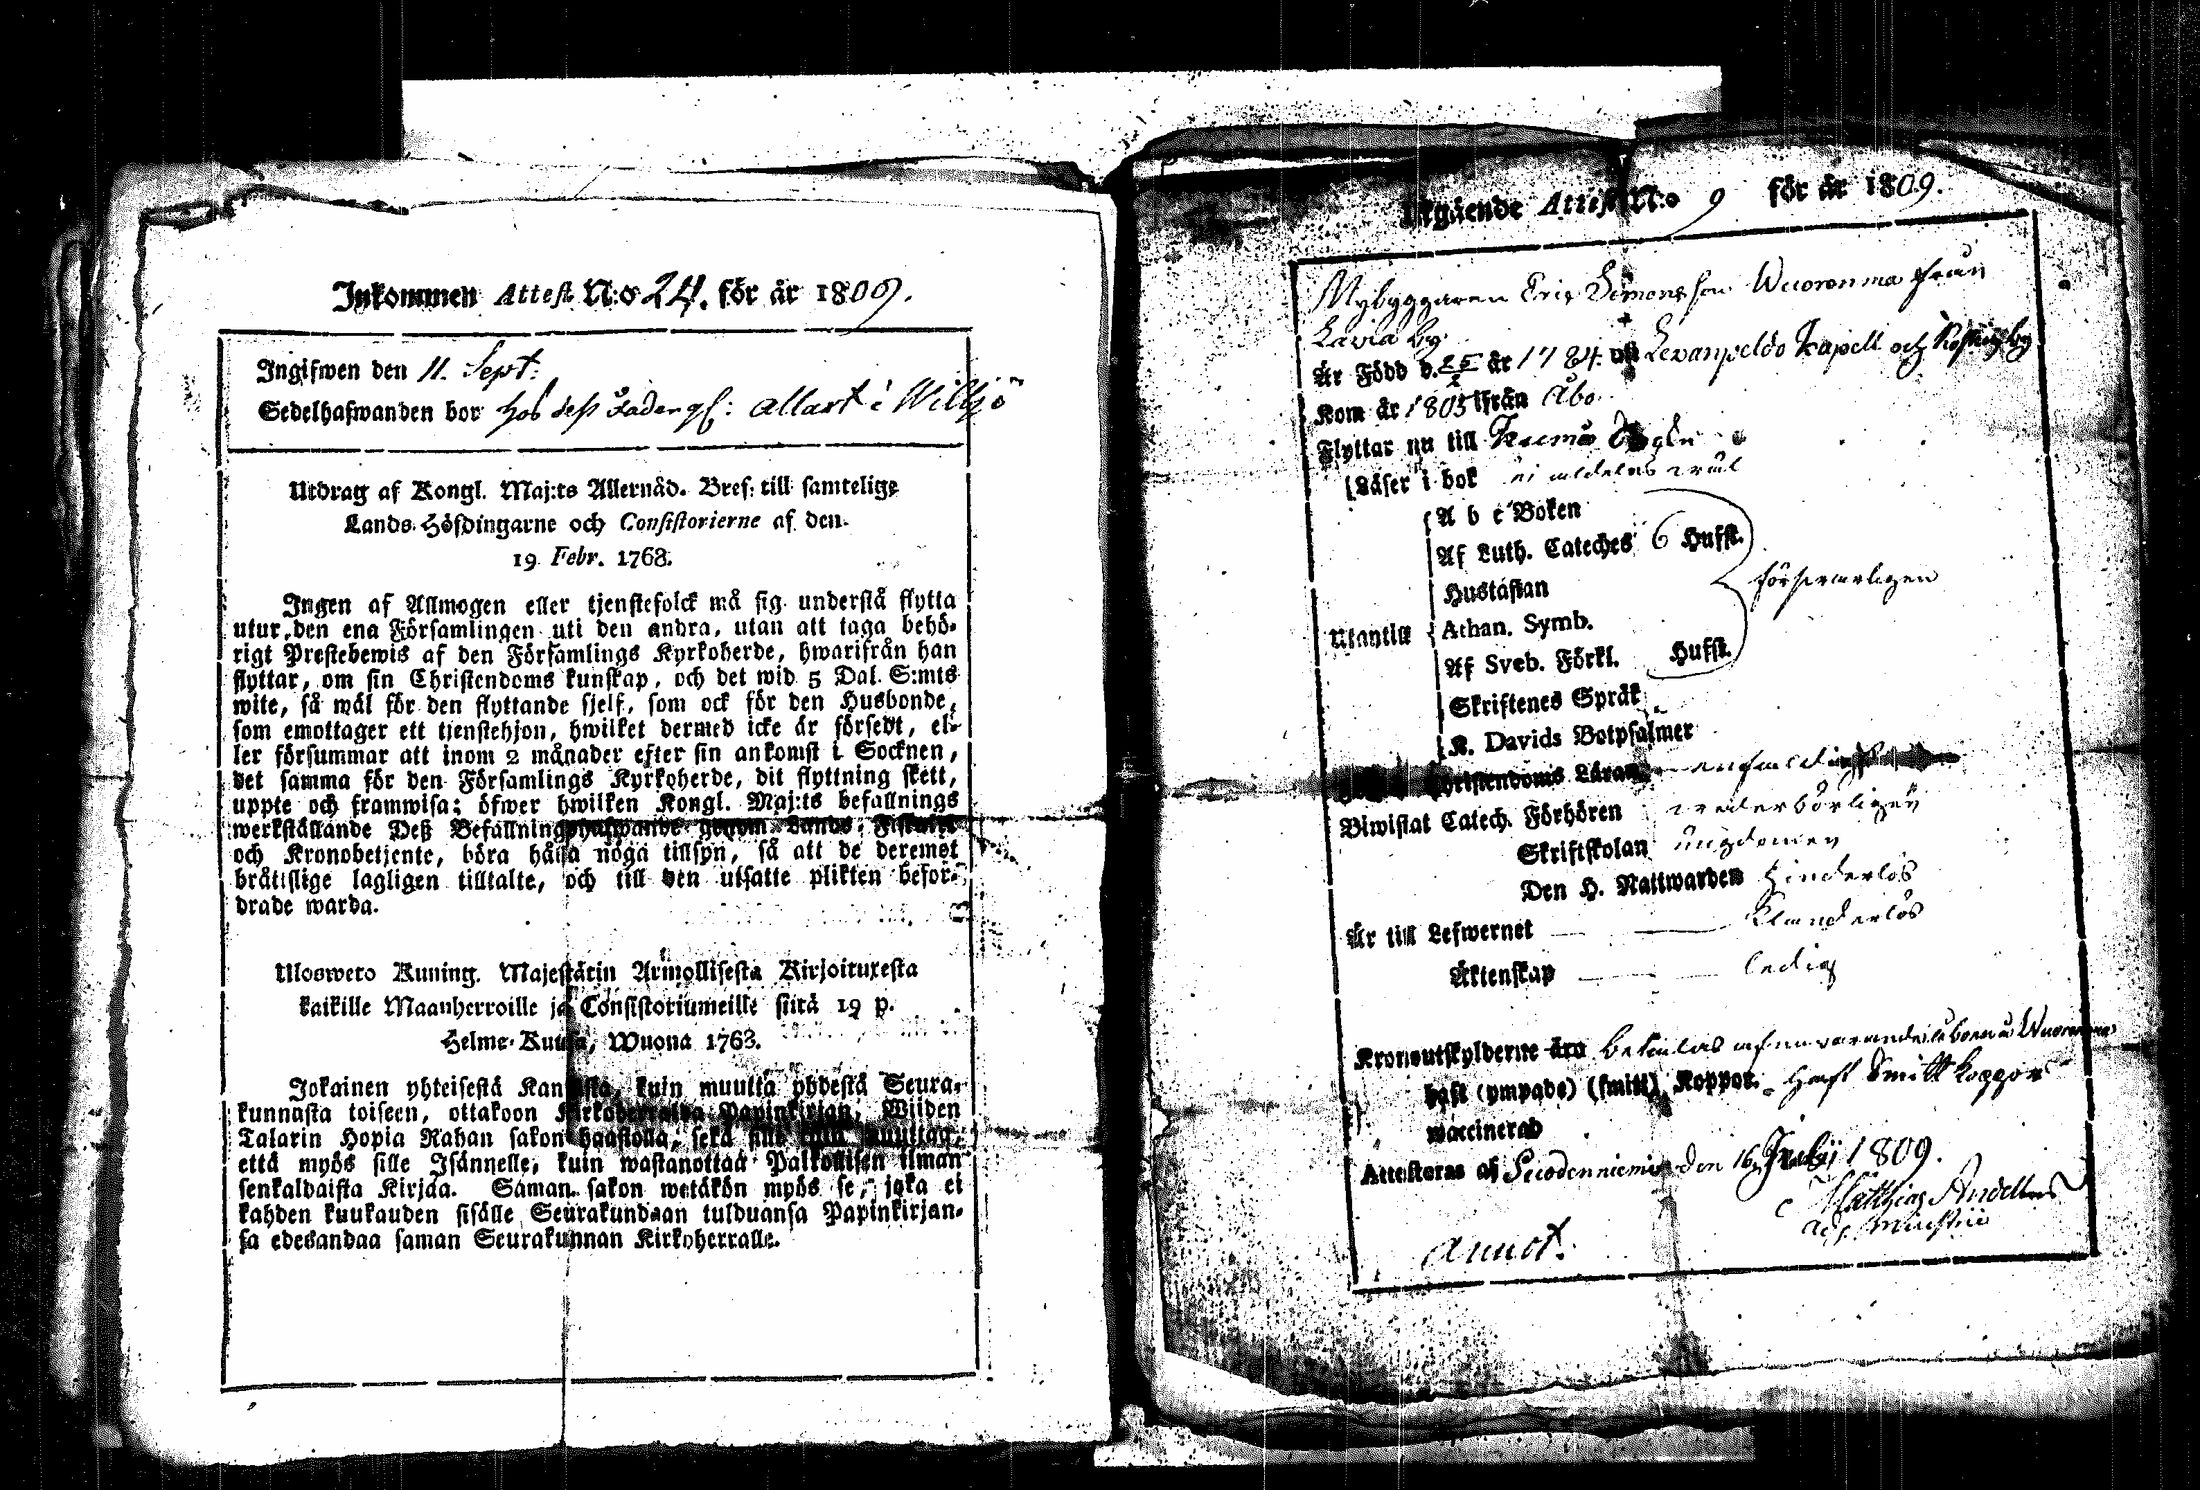 Inkommen Attest. N:o 24. för år 1809.
Ingifwen den 11. Sept:
Sedelhafwanden bor hos dess Fader
Utdrag af Kongl. Maj:ts Allernåd. Bref: till samtelige
Lands-Höfdingarne och Consistorierne af den
19 Febr. 1763.
Ingen af Allmogen eller tjenstefolck må sig understå flytta
utur den ena Församlingen uti den andra, utan att taga behö-
rigt Prestebewis af den Församlings Kyrkoherde, hwarifrån han
flyttar, om sin Christendoms kunskap, och det wid 5 Dal. S:mts
wite, så wäl för den flyttande sjelf, som ock för den Husbonde,
som emottager ett tjenstehjon, hwilket dermed icke är försedt, el-
ler försummar att inom 2 månader efter sin ankomst i Socknen,
det samma för den Församlings Kyrkoherde, dit flyttning skett,
uppte och framwisa; öfwer hwilken Kongl. Maj:ts befallnings
werkställande Deß Befallningshafwande genom Lands-Fiskaler
och Kronobetjente, böra hålla noga tillsyn, så att de deremot
bråttslige lagligen tilltalte, och till den utsatte plikten befor-
drade warda.
Ulosweto Kuning. Majestätin Armollisesta Kirjoituxesta
kaikille Maanherroille ja Consistoriumeille siitä 19 p.
Helme-Kuusa, Wuona 1763.
Jokainen yhteisestä Kansasta, kuin muutta yhdestä Seura-
kunnasta toiseen, ottakoon Kirkoherralda Papinkirjan, Wiiden
Talarin Hopia Rahan sakon haastolla, sekä sille kuin muuttaa,
että myös sille Isännelle, kuin wastanottaa Palkollisen ilman
senkaldaista Kirjaa. Saman sakon wetäkön myös se, joka ei
kahden kuukauden sisälle Seurakundaan tulduansa Papinkirjan-
sa edesandaa saman Seurakunnan Kirkoherralle.
Utgående Attest N:o 9 för år 1809.
Nybyggaren Eric Simonsson Wuorenmaa från
Lavia by.
År Född d. 25 år 1784. uti Kapell och
Kom år 1805 ifrån Åbo.
Flyttar nu till
Läser i bok ej aldeles
Utantill
A b c Boken
Af Luth. Cateches 6 Hufst.
Hustaflan
Athan. Symb.
Af Sveb. Förkl. Hufst.
försvarligen
Skriftenes Språk
K. Davids Botpsalmer
Christendoms Läran enfaldigt
Biwistat Catech. Förhören wederbörligen
Skriftskolan ungdomen
Den H. Nattwarden hinderlös
Är till Lefwernet klanderlös
Äktenskap ledig
Kronoutskylderne äro betalas af
haft (ympade) (smitt) Koppor. Haft Smitt koppor
waccinerad
Attesteras af Suodenniemi den 16 Julij 1809.
Matthias
adj. Minist:
annot.